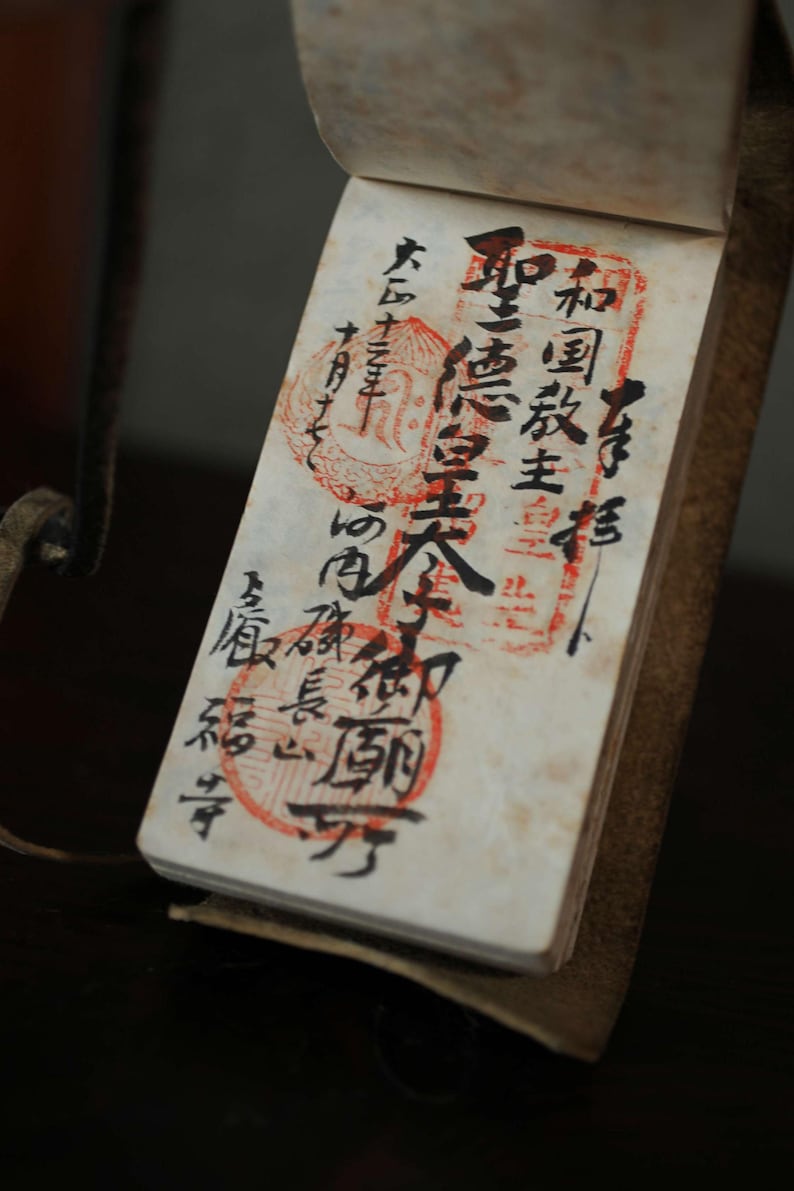 奉拝
和国教主
聖徳皇太子御廟所
大正十二年
十月十七日
河内磯長山
叡福寺